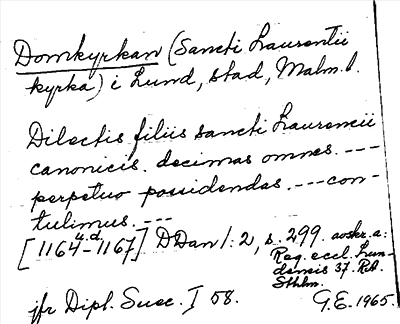 Domkyrkan (Sancti Laurentii
kyrka) i Lund, stad, Malm. l.
Dilectis filiis sancti Laurencii
canonicis. decimas omnes. ---
perpetuo possidendas. --- con-
tulimus. ---
[1164 u.d. - 1167] DDan I: 2, s. 299. avskr. a:
Reg. eccl. Lun-
densis 37. RA.
Sthlm.
jfr Dipl. Suec. I 58.
G.E. 1965.